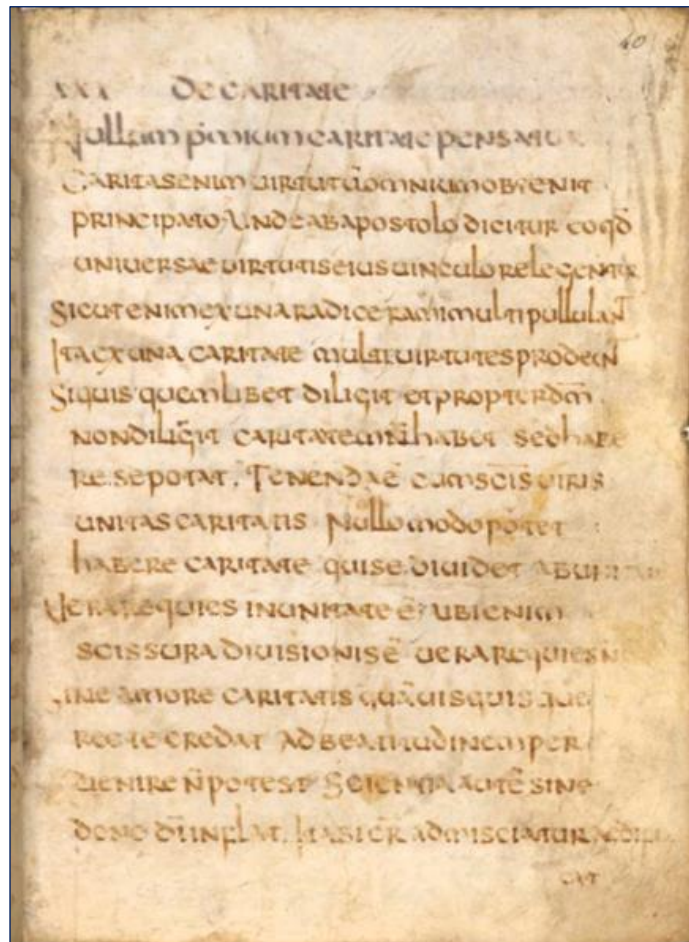 40
XXI DE CARITATE
Nullum p̄mium caritate pensatur
Caritas enim uirtutū omnium obtenit
principato. Unde ab apostolo dicitur eo qđ
uniuersae uirtutis eius uinculo relegentur
Sicut enim ex una radice rami multi pullulan̄t
Ita ex una caritate multi uirtutes prodeun̄
Siquis quemlibet diligit et propter dm̄
non diligit caritatem n̄ habet sed habe
re se potat. Tenendae cum scīs uiris
unitas caritatis Nullo modo potet
habere caritate qui se diuidet ab unitate
Uera requies in unitate ē. ubi enim
scissura diuisionis ē uera requies n̄
Sine amore caritatis quāuis quisque
recte credat ad beatitudinem per
uenire n̄ potest Scientia autē sine
dono dī inflat. Ita si ē admisciatur